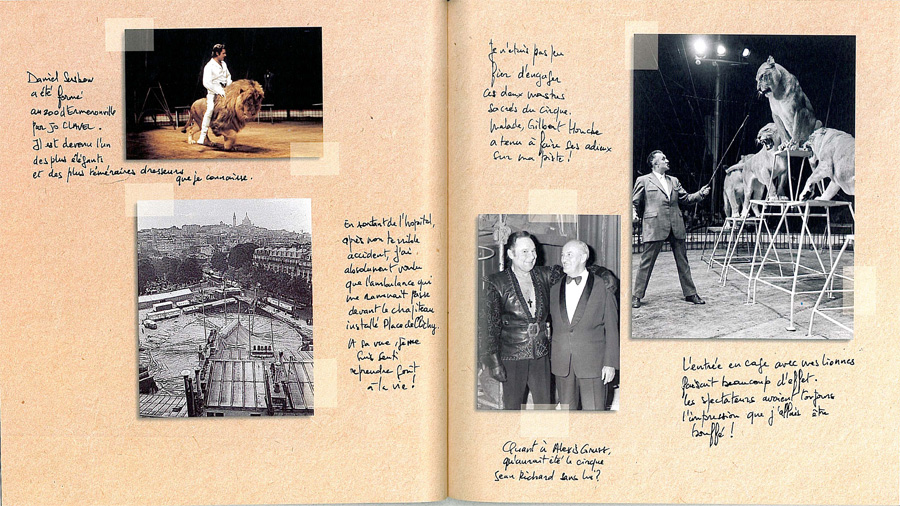 Daniel Sershow
a été formé
au zoo d'Ermenonville
par Jo CLAVEL.
Il est devenu l'un
des plus élégants
et des plus téméraires dresseurs
que je connaisse.
En sortant de l'hopital,
après mon terrible
accident, j'ai
absolument voulu
que l'ambulance qui
me ramenait passe
devant le chapiteau
installé Place de Clichy.
A sa vue, je me
suis senti
reprendre goût
à la vie !
Je n'étais pas peu
fier d'engager
ces deux monstres
sacrés du cirque.
Malade, Gilbert Houcke
a tenu à faire ses adieux
sur ma piste !
Quant à Alexis Gruss,
qu'aurait été le cirque
Jean Richard sans lui ?
L'entrée en cage avec mes lionnes
faisait beaucoup d'effet.
Les spectateurs avaient toujours
l'impression que j'allais être
bouffé !